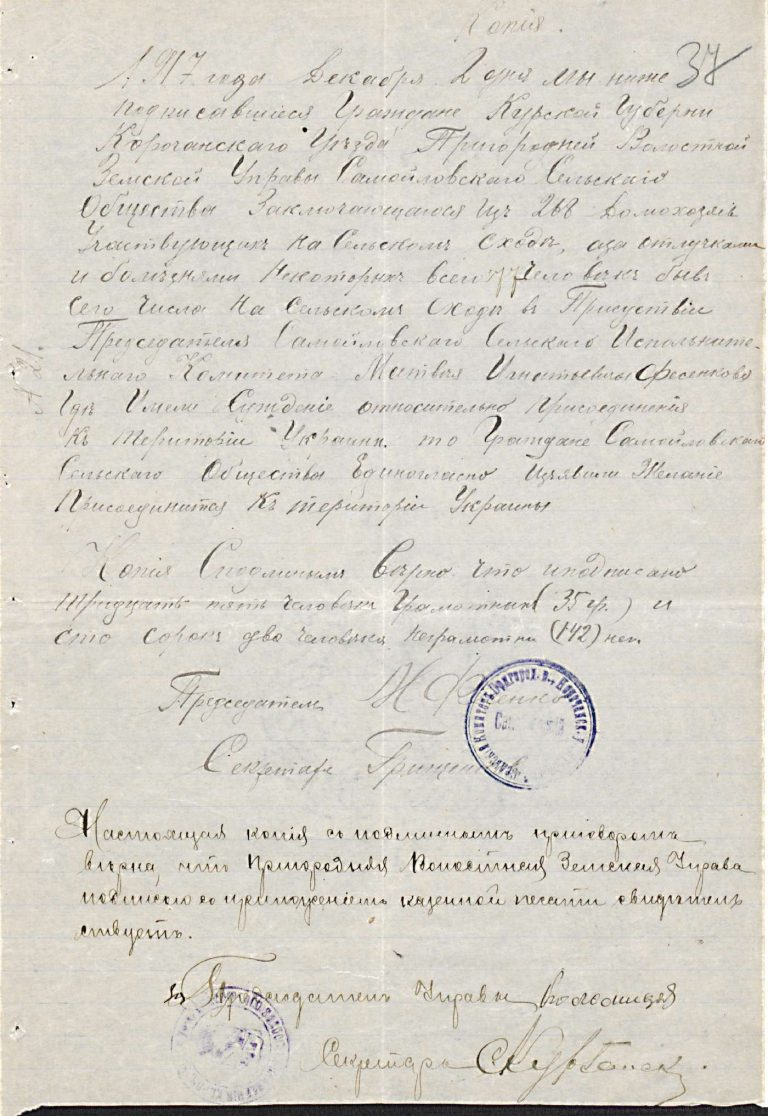 Копія.
37
1917 года Декабря 2 дня мы ниже
подписавшиеся Граждане Курской Губерни
Корочанскаго Уѣзда Пригородней Волостной
Земской Управы Самойловскаго Сельскаго
Общества Заключающагося Изъ 268 Домохозяевъ
Участвующихъ на Сельскомъ Сходѣ, аза отлучками
и болѣзнями Некоторыхъ всего 177 Человѣкъ бывъ
Сего Числа На Сельскомъ Сходѣ въ Присуствіи
Предсѣдателя Самойловскаго Сельскаго Исполните-
льнаго Комитета Матвѣя Игнатьевича Фесенково
Гдѣ Имели Сужденіе относительно присоединенія
Къ територіи Украины. то Граждане Самойловскаго
Сельскаго Общества Единогласно Изъявили Желаніе
Присоединится Къ територіи Украины
Копія Сподлинымъ Вѣрно что и подписано
тридцать пять человѣкъ Грамотных (35 гр.) и
сто сорокъ два человѣка неграмотны (142) нег.
Председатель
Секретарь
Настоящая копія съ подлиннымъ приговоромъ
вѣрна, что Пригородняя Волостная Земская Управа
подписью со приложеніемъ казенной печати свидѣтель
ствуетъ.
Предсѣдатель Управы
Секретарь